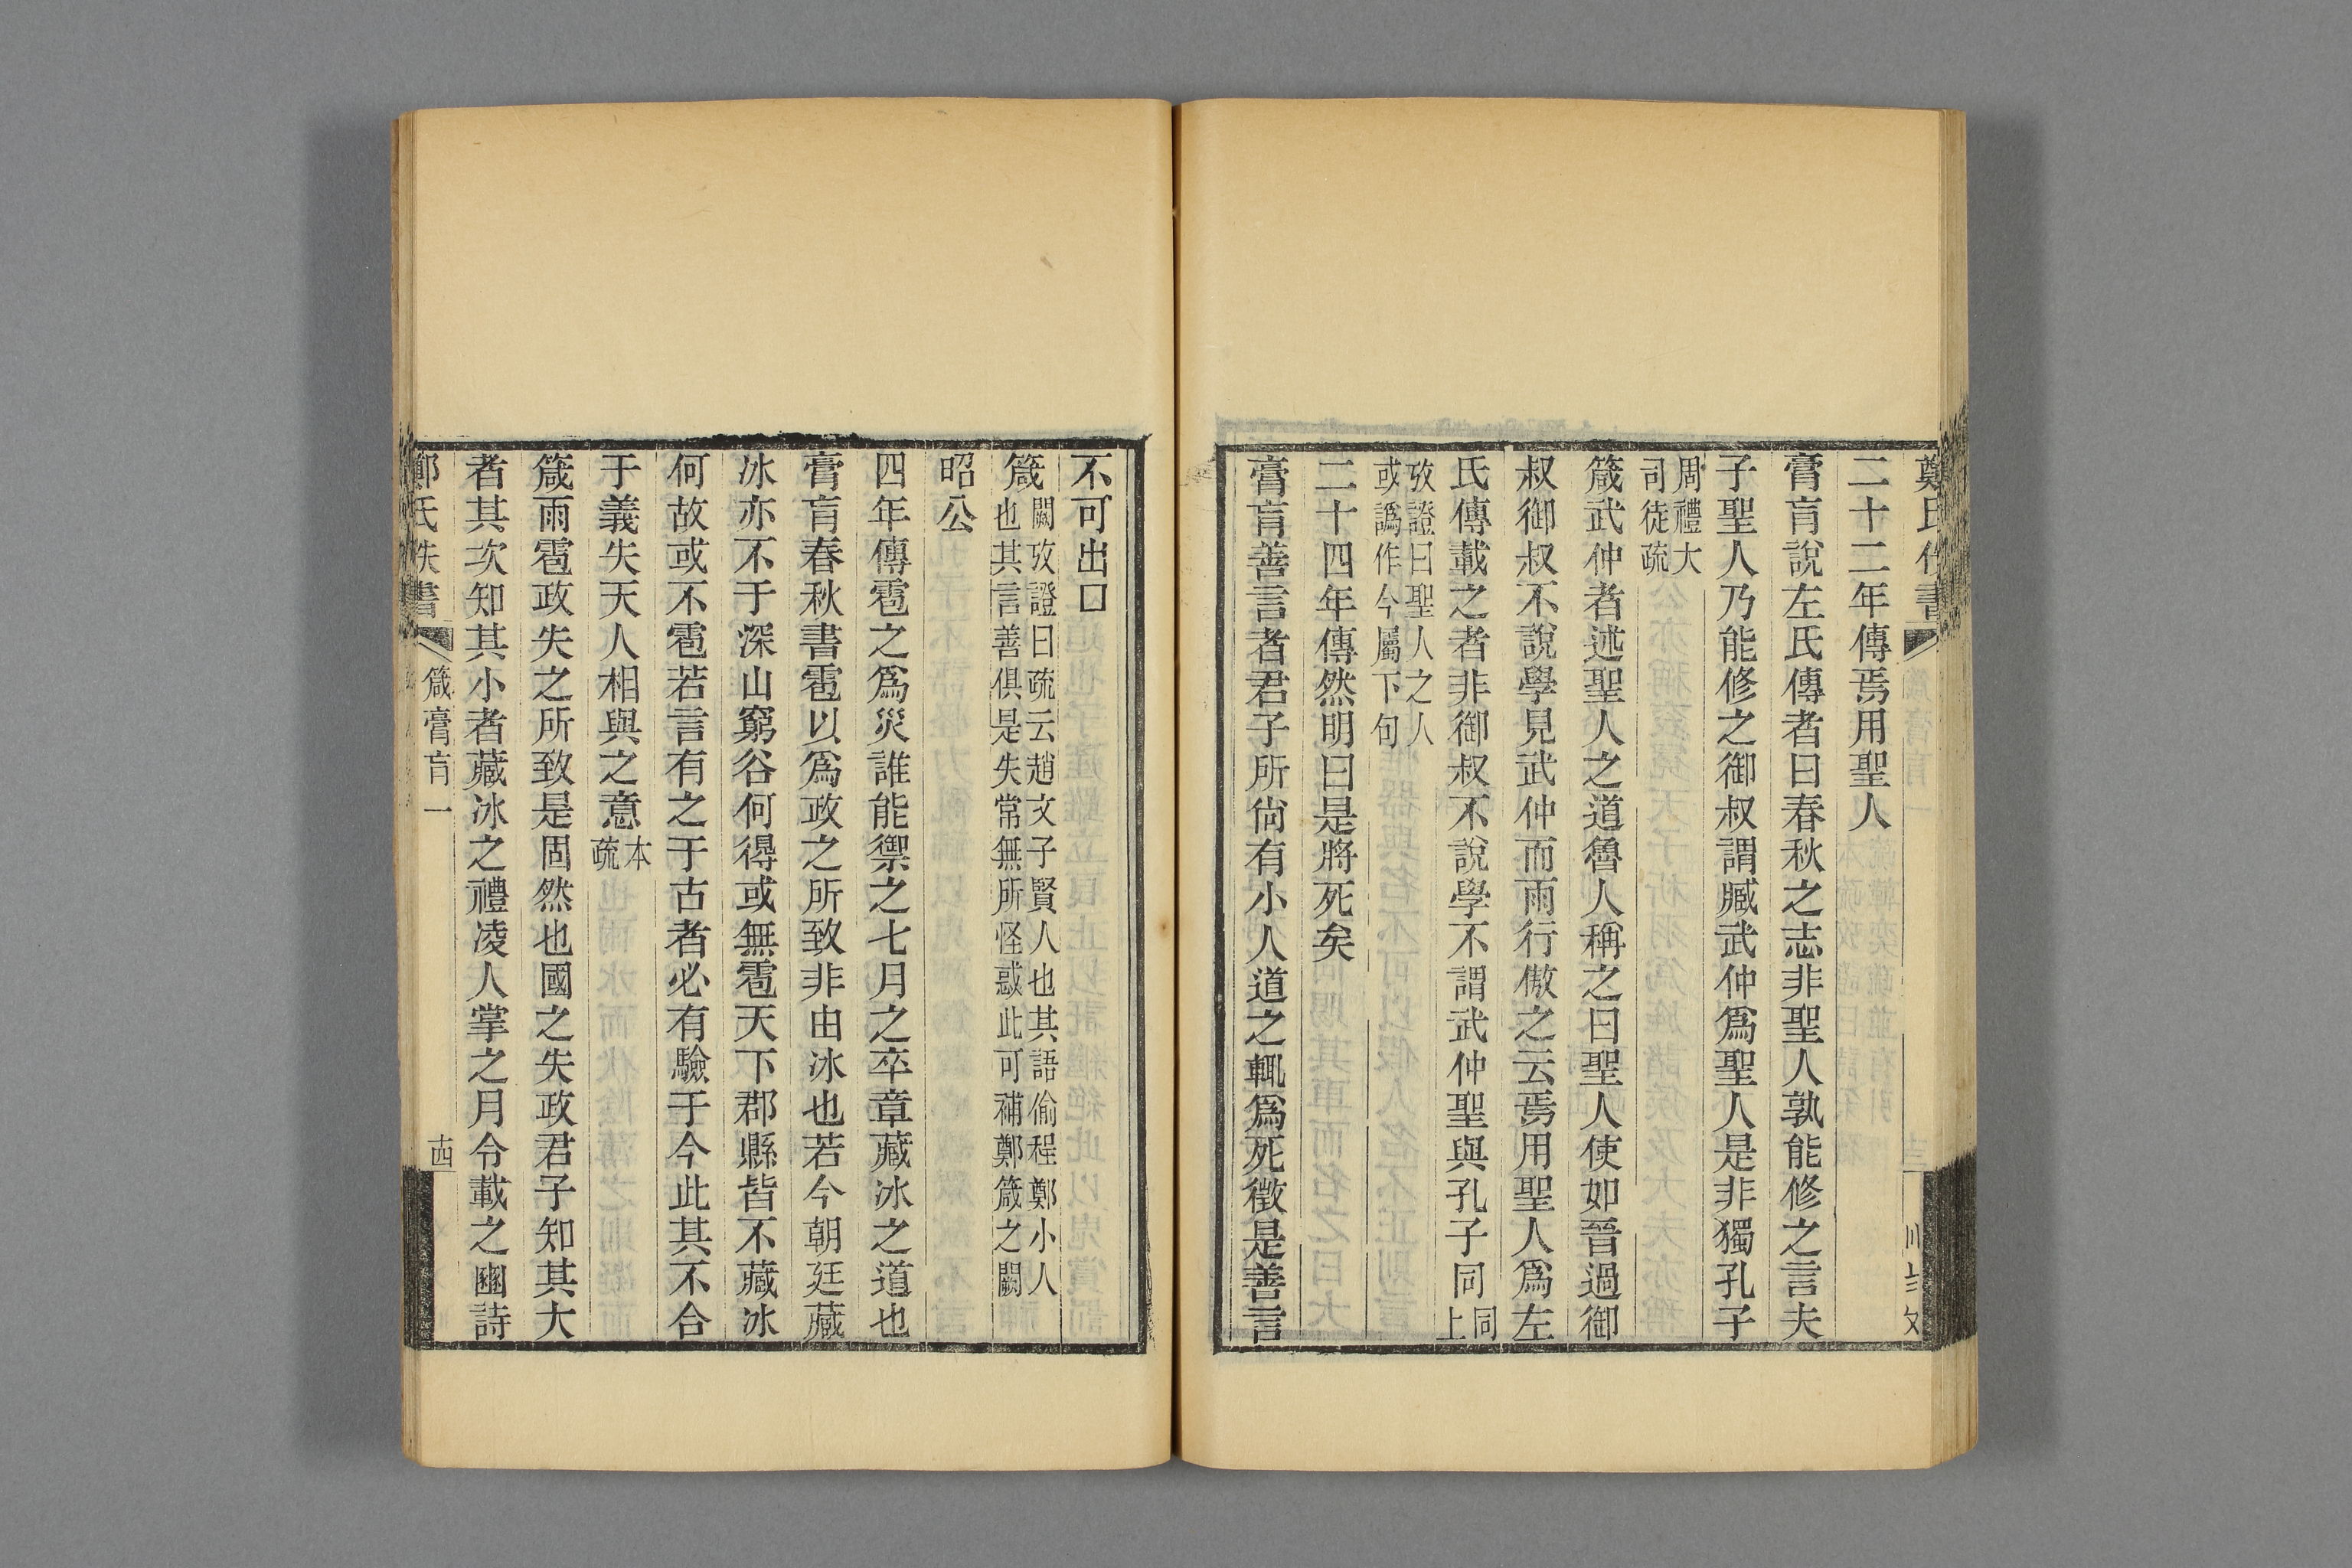 二十二年傳焉用聖人
膏肓說左氏傳者曰春秋之志非聖人孰能修之言夫
子聖人乃能修之御叔謂臧武仲爲聖人是非獨孔子
周禮大
司徒疏
箴武仲者述聖人之道魯人稱之曰聖人使如晉過御
叔御叔不說學見武仲而雨行傲之云焉用聖人爲左
氏傳載之者非御叔不說學不謂武仲聖與孔子同同上
攷證曰聖人之人
或譌作今屬下句
二十四年傳然明曰是將死矣
膏肓善言者君子所尙有小人道之輒爲死徵是善言
不可出口
箴闕攷證曰疏云趙文子賢人也其語偷程鄭小人
也其言善俱是失常無所怪惑此可補鄭箴之闕
昭公
四年傳雹之爲災誰能禦之七月之卒章藏冰之道也
膏肓春秋書雹以爲政之所致非由冰也若今朝廷藏
冰亦不于深山窮谷何得或無雹天下郡縣皆不藏冰
何故或不雹若言有之于古者必有驗于今此其不合
于義失天人相與之意本疏
箴雨雹政失之所致是固然也國之失政君子知其大
者其次知其小者藏冰之禮凌人掌之月令載之豳詩
鄭氏佚書 箴膏肓一 十四